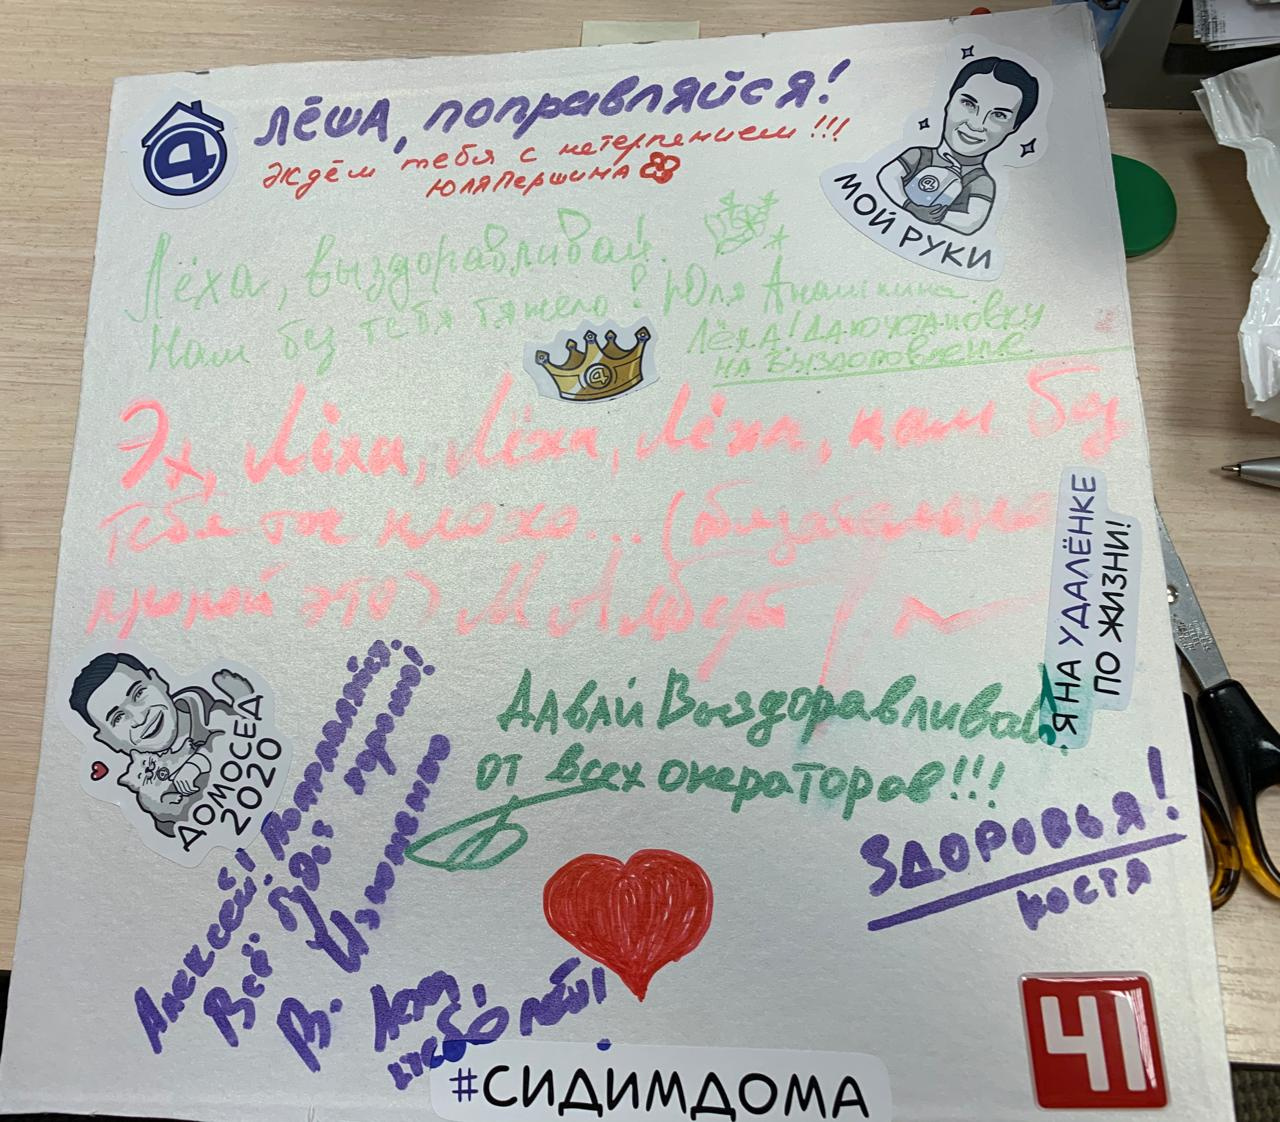 4
ЛЁША, поправляйся!
Ждём тебя с нетерпением!!!
Юля Першина
МОЙ РУКИ
Лёха, выздоравливай.
Нам без тебя тяжело! Юля Анашкина.
Лёха! Даю установку
на выздоровление
Эх, Лёха, Лёха, Лёха, нам без
тебя так плохо... (обязательно
этто) М Альберт
Я НА УДАЛЁНКЕ
ПО ЖИЗНИ!
ДОМОСЕД
2020
Алексей! Поправляйся.
Всё будет хорошо!
В.
Давай Выздоравливай
от всех операторов!!!
ЗДОРОВЬЯ!
костя
#СИДИМДОМА
41